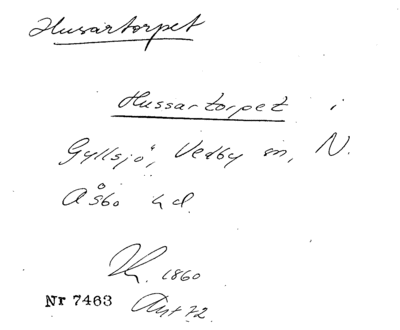 Husartorpet
Hussartorpet i
Gyllsjö, Vedby sn, N.
Åsbo hd.
1860
Nr 7463